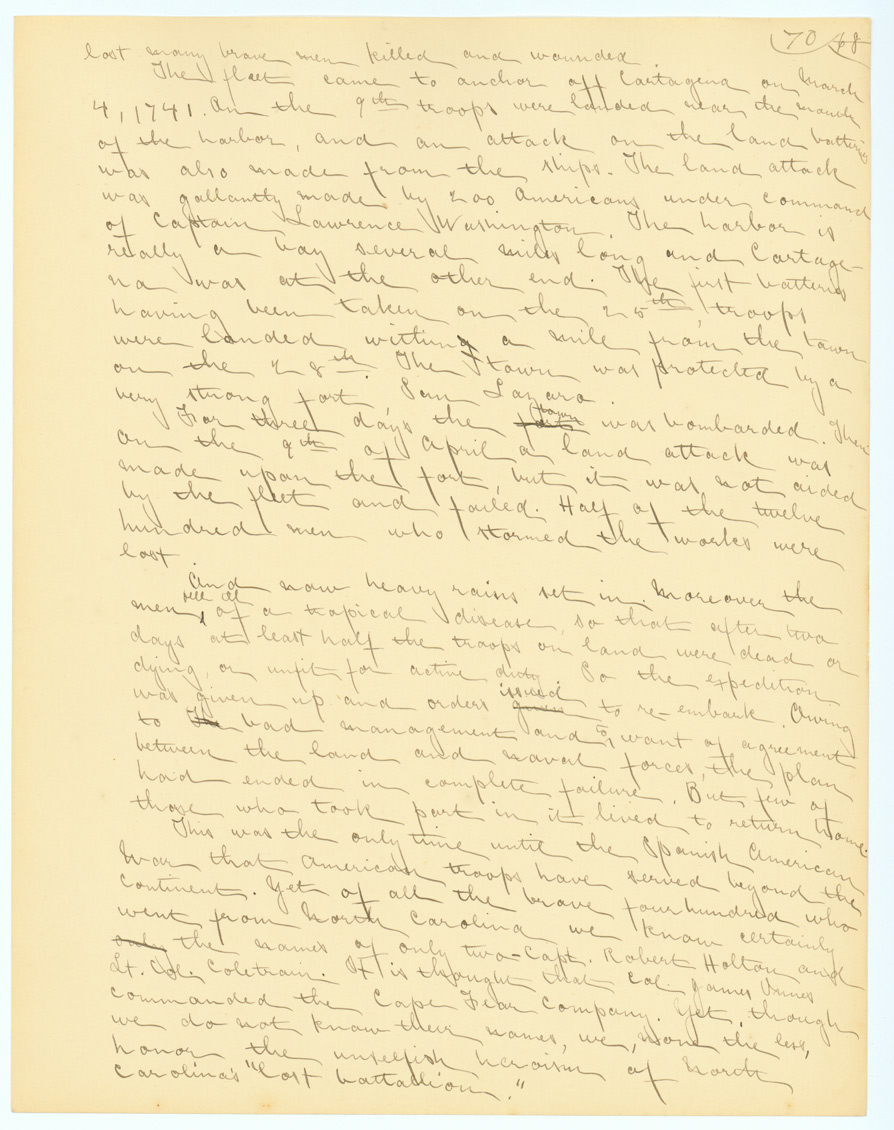 70 68
lost many brave men killed and wounded.
The fleet came to anchor off Cartagena on March
4, 1741. On the 9th troops were landed near the mouth
of the harbor, and an attack on the land batteries
was also made from the ships. The land attack
was gallantly made by 200 Americans under command
of Captain Lawrence Washington. The harbor is
really a bay several miles long and Cartage-
na was at the other end. The first batteries
having been taken on the 25th, troops
were landed within a mile from the town
on the 28th. The town was protected by a
very strong fort, San Lazaro.
For three days the town was bombarded. Then
on the 9th of April a land attack was
made upon the fort, but it was not aided
by the fleet and failed. Half of the twelve
hundred men who stormed the works were
lost.
And now heavy rains set in. Moreover the
men fell ill of a tropical disease, so that after two
days at least half the troops on land were dead or
dying, or unfit for active duty. So the expedition
was given up and orders issued to re-embark. Owing
to bad management and to want of agreement
between the land and naval forces, the plan
had ended in complete failure. But few of
those who took part in it lived to return home.
This was the only time until the Spanish American
War that American troops have served beyond the
Continent. Yet of all the brave four hundred who
went from North Carolina we know certainly
only the names of only two - Capt. Robert Holton and
Lt. Coletrain. It is thought that Col. James Innes
commanded the Cape Fear Company. Yet, though
we do not know their names, we, none the less,
honor the unselfish heroism of North
Carolina's "lost battallion."